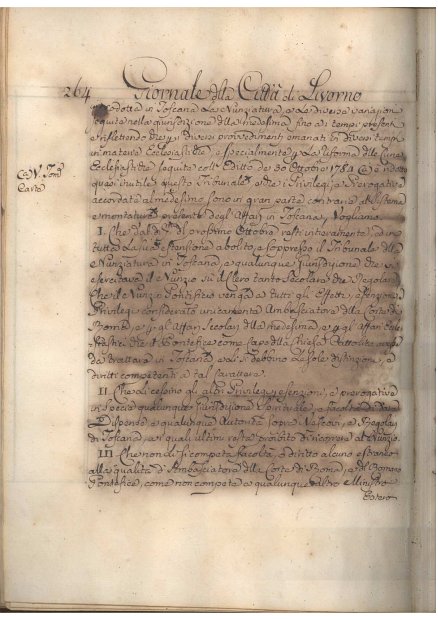 264 Giornale della Città di Livorno
dotta in Toscana la Nunziatura, e le diverse variazioni
seguite nella giurisdizione della medesima fino ai tempi presenti
e riflettendo che i diversi provvedimenti emanati in diversi tempi
in materia Ecclesiastiche, e specialmente la riforma delle Curie
Ecclesiastiche seguita coll'Editto de 30 Ottobre 1784
Ca V. Tom
Carte
quasi inutile questo Tribunale, e che i Privilegi, e Prerogative
accordate al medesimo sono in gran parte contrarie al sistema
presente degli Affari in Toscana, Vogliamo
I. Che dal dì del prossimo Ottobre resti interamente, ed in
tutta la sua estensione abolito, e soppresso il Tribunale della
Nunziatura in Toscana, e qualunque Giurisdizione che
esercitava il Nunzio sul Clero tanto Secolare che Regolare
Che il Nunzio Pontificio venga a tutti gli Effetti, esenzioni
Privilegi considerato unicamente Ambasciatore della Corte di
Roma, e gli Affari Secolari della medesima, e gli affari Eccle
siastici che il Pontefice come Capo della Chiesa Cattolica
da trattare in Toscana, e li si debbino le sole distinzioni, e
diritti competenti a tal carattere
II. Che li cessino gli altri Privilegi, esenzioni, e prerogative
in specie qualunque Giurisdizione Spirituale, e facoltà di
Dispense, e qualunque Autorità sopra Vescovi, e Regolari
di Toscana, ai quali ultimi resta proibito di ricorrere al Nunzio.
III. Che non li si competa facoltà, o diritto alcuno estraneo
alla qualità di Ambasciatore della Corte di Roma, e del Romano
Pontefice, come non compete a qualunque altro Ministro
Estero